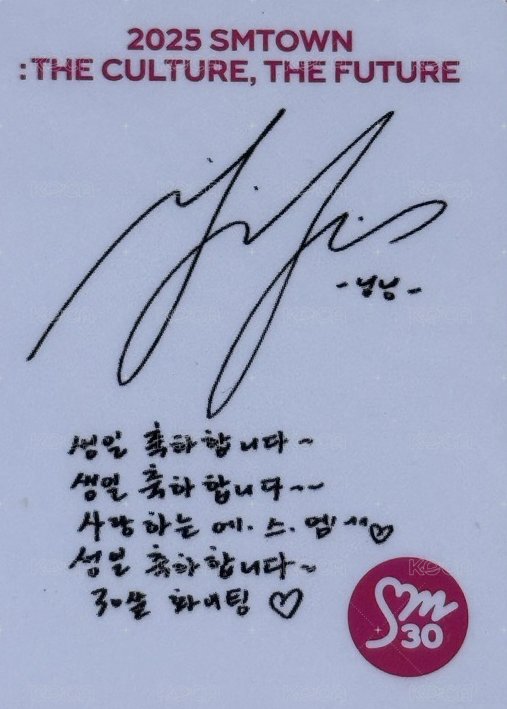 2025 SMTOWN
: THE CULTURE, THE FUTURE
-닝닝-
생일 축하합니다~
생일 축하합니다~~
사랑하는 에.스.엠!^^♡
생일 축하합니다~
30살 화이팅 ♡
Sm
30